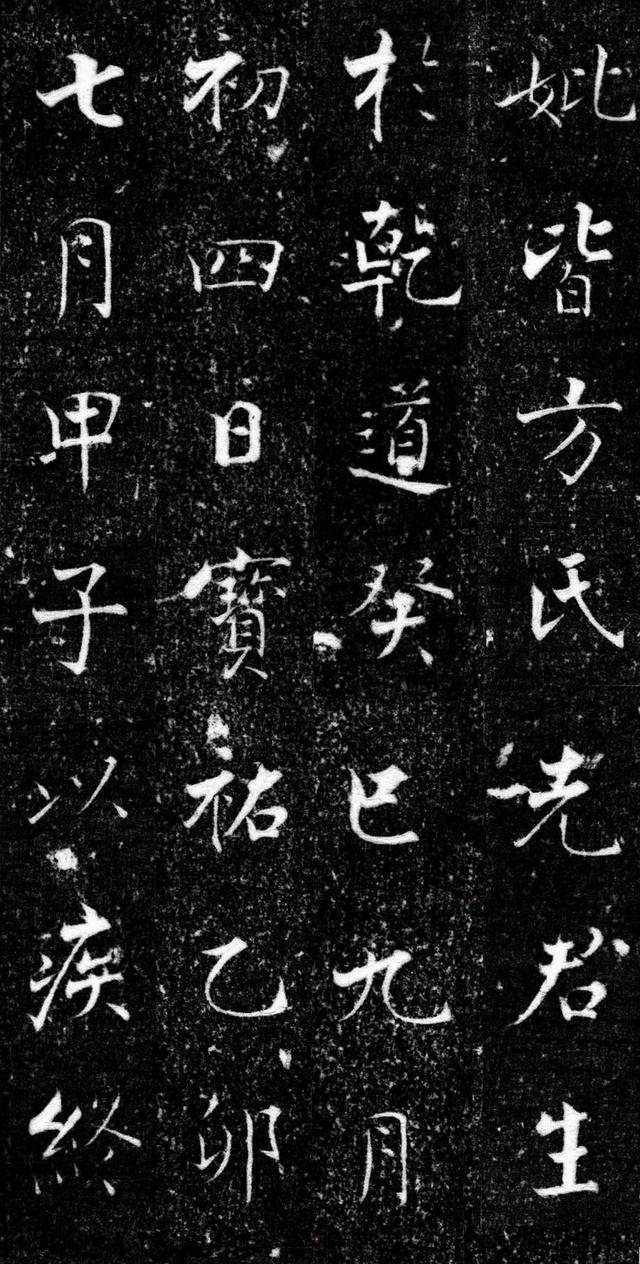 妣皆方氏先君生
於乾道癸巳九月
初四日寳祐乙卯
七月甲子以疾終